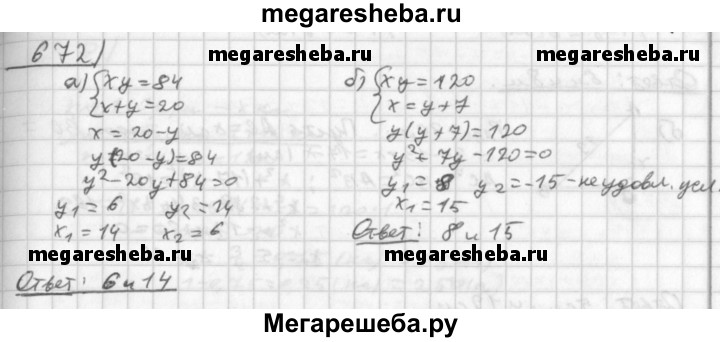 megaresheba.ru
672)
megaresheba.ru megaresheba.ru
а) { xy = 84
x+y = 20
x = 20-y
y(20-y)=84
y²-20y+84=0
y₁ = 6 y₂ = 14
x₁ = 14 x₂ = 6
Ответ: 6 и 14
б) { xy = 120
x = y+7
y(y+7)=120
y²+7y-120=0
y₁ = 8 y₂ = -15 - не удовл. усл.
x₁ = 15
Ответ: 8 и 15
megaresheba.ru megaresheba.ru
Мегарешеба.ру